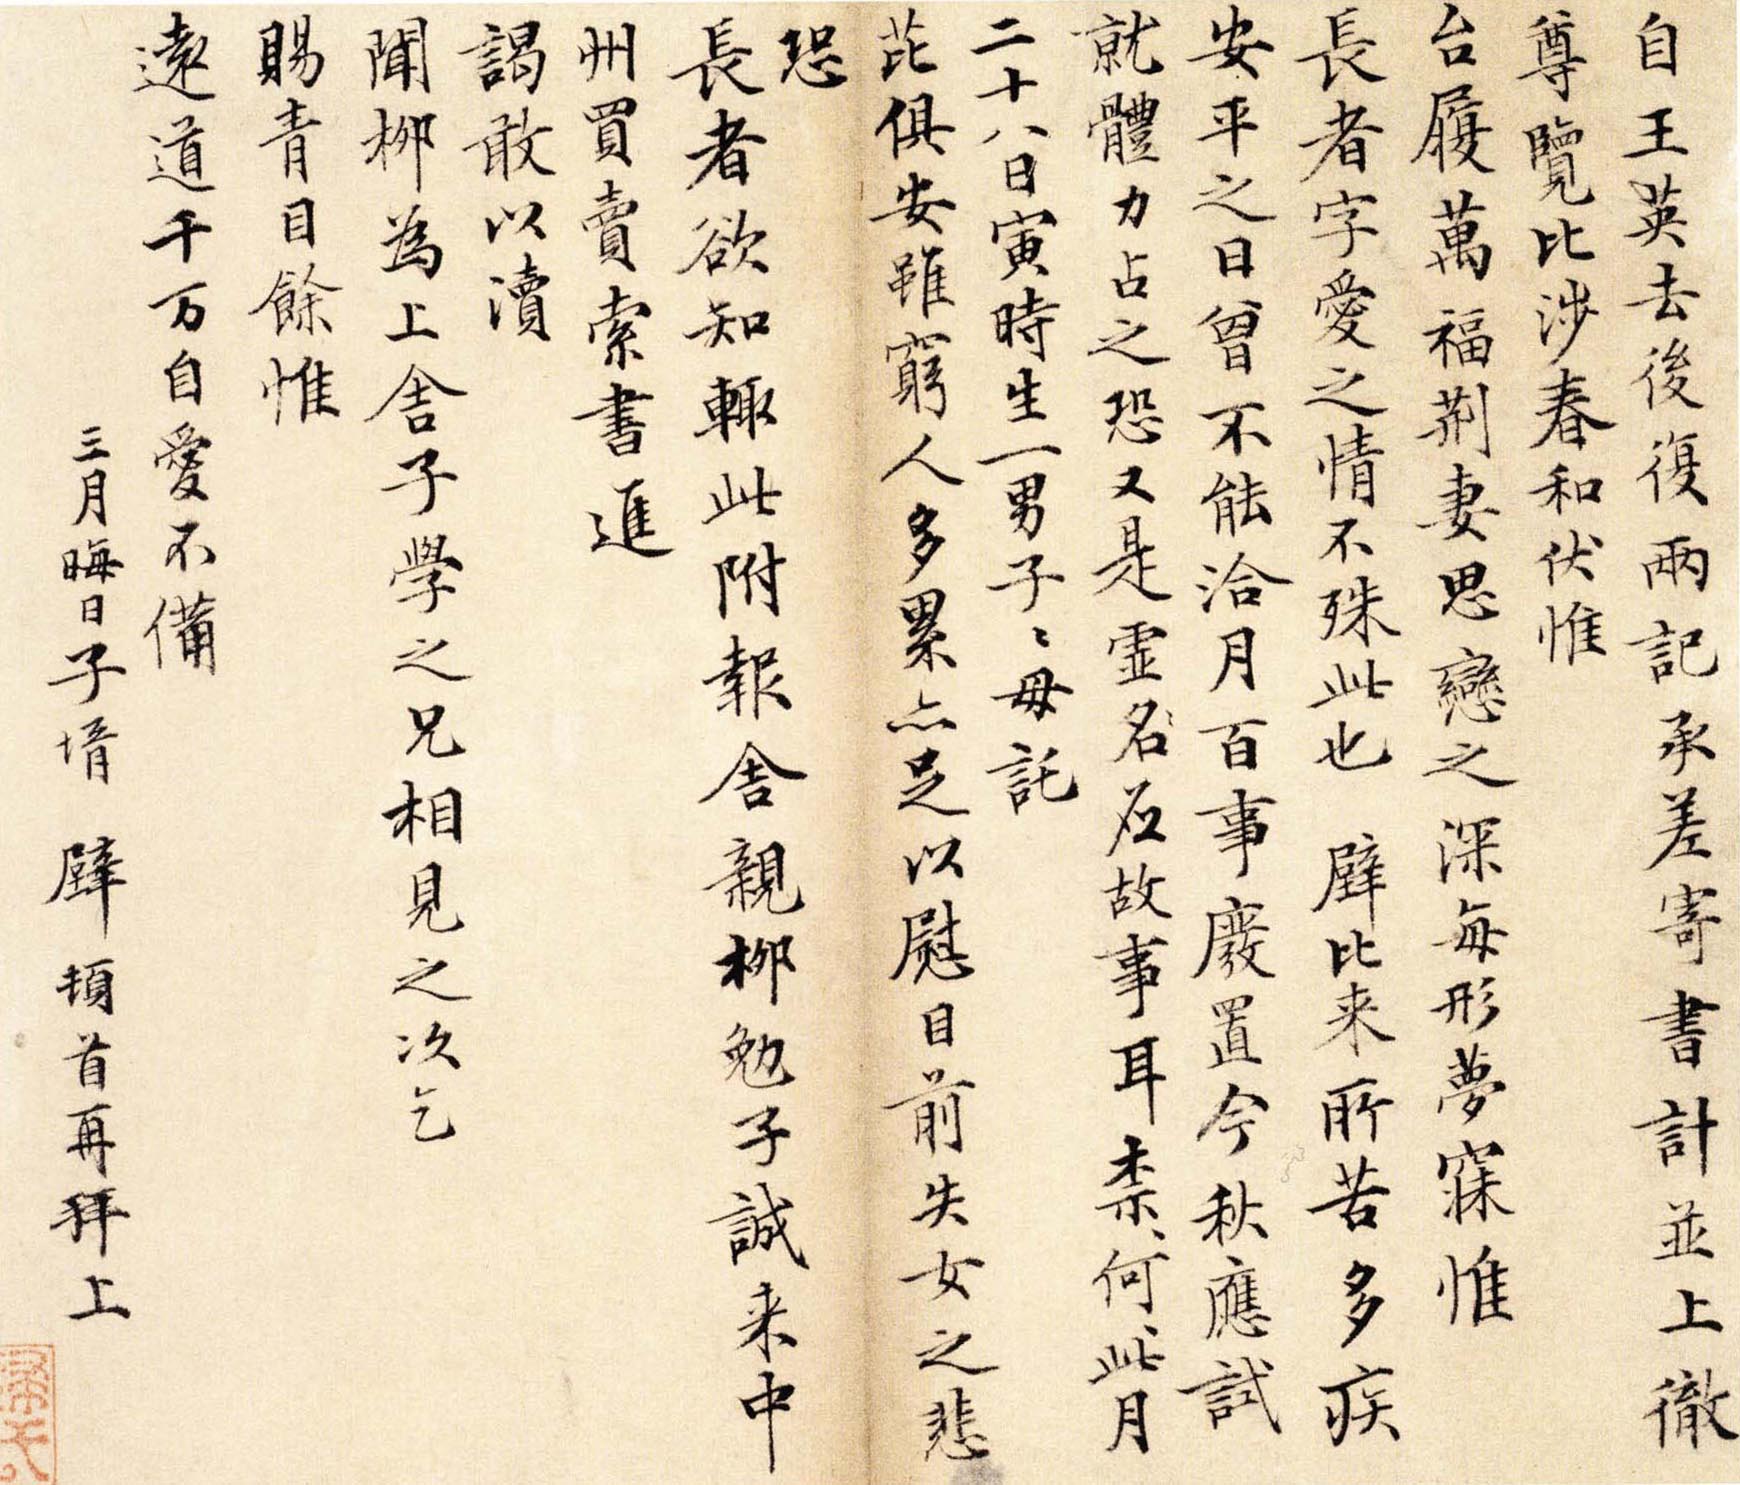 自王英去後復兩記承差寄書計並上徹
尊覽比涉春和伏惟
台履萬福荊妻思戀之深每形夢寐惟
長者字愛之情不殊此也 辟比来所苦多疾
安平之日曾不能洽月百事廢置今秋應試
就體力占之恐又是虛名应故事耳柰、何、此月
二十八日寅時生一男子〻母託
芘俱安雖窮人多累亦足以慰目前失女之悲
恐
長者欲知輒此附報舍親柳勉子誠来中
州買賣索書進
謁敢以瀆
聞柳為上舍子學之兄相見之次乞
賜青目餘惟
遠道千万自愛不備
三月晦日子壻 辟 頓首再拜上